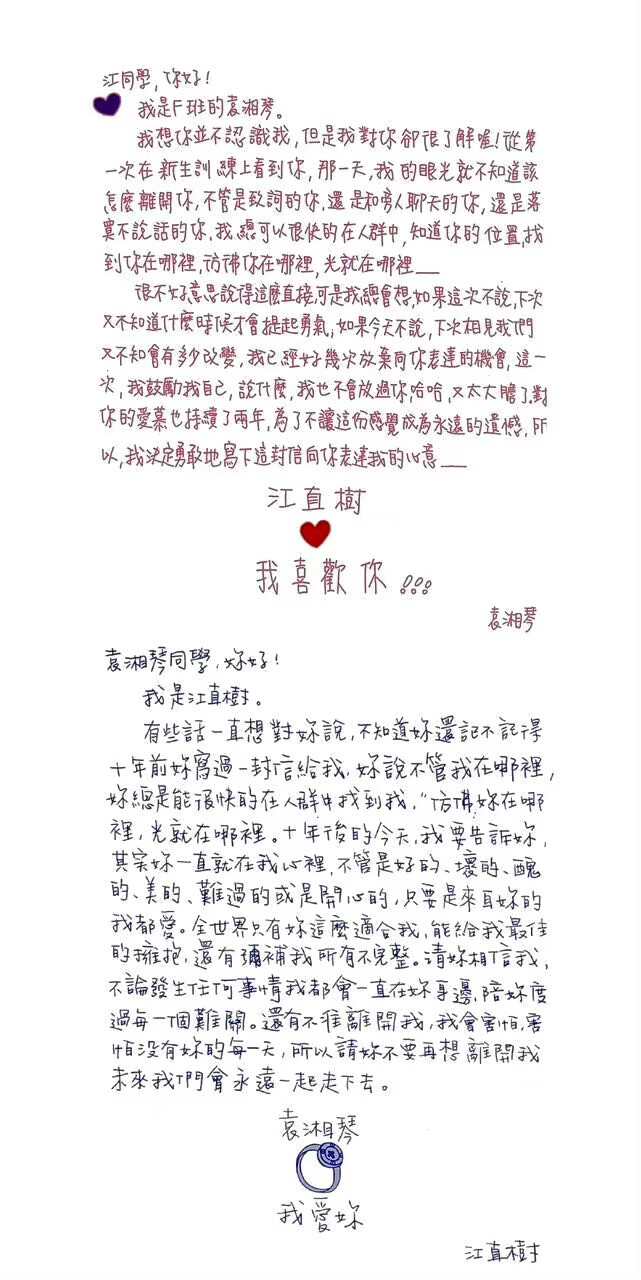 江同學,你好!
我是F班的袁湘琴。
我想你並不認識我,但是我對你卻很了解喔!從第
一次在新生訓練上看到你,那一天,我的眼光就不知道該
怎麼離開你,不管是致詞的你.還是和旁人聊天的你,還是落
寞不說話的你.我總可以很快的在人群中,知道你的位置,找
到你在哪裡,彷彿你在哪裡,光就在哪裡__
很不好意思說得這麼直接,可是我總會想,如果這次不說,下次
又不知道什麼時候才會提起勇氣,如果今天不說,下次相見我們
又不知會有多少改變,我已經好幾次放棄向你表達的機會,這一
次,我鼓勵我自己,說什麼,我也不會放過你,哈哈,又太大膽了.對
你的愛慕也持續了兩年,為了不讓這份感覺成為永遠的遺憾,所
以,我決定勇敢地寫下這封信向你表達我的心意__
江直樹
我喜歡你!!!
袁湘琴
袁湘琴同學,妳好!
我是江直樹。
有些話一直想對妳說,不知道妳還記不記得
十年前妳寫過一封信給我,妳說不管我在哪裡,
妳總是能很快的在人群中找到我,"彷彿妳在哪
裡,光就在哪裡。十年後的今天,我要告訴妳,
其实妳一直就在我心裡,不管是好的、壞的、醜
的、美的、難過的或是開心的,只要是來自妳的
我都愛。全世界只有妳這麼適合我,能給我最佳
的擁抱,還有彌補我所有不完整。請妳相信我,
不論發生任何事情我都會一直在妳身邊,陪妳度
過每一個難關。還有不准離開我,我會害怕,害
怕沒有妳的每一天,所以請妳不要再想離開我
未來我們會永遠一起走下去。
袁湘琴
我愛妳
江直樹